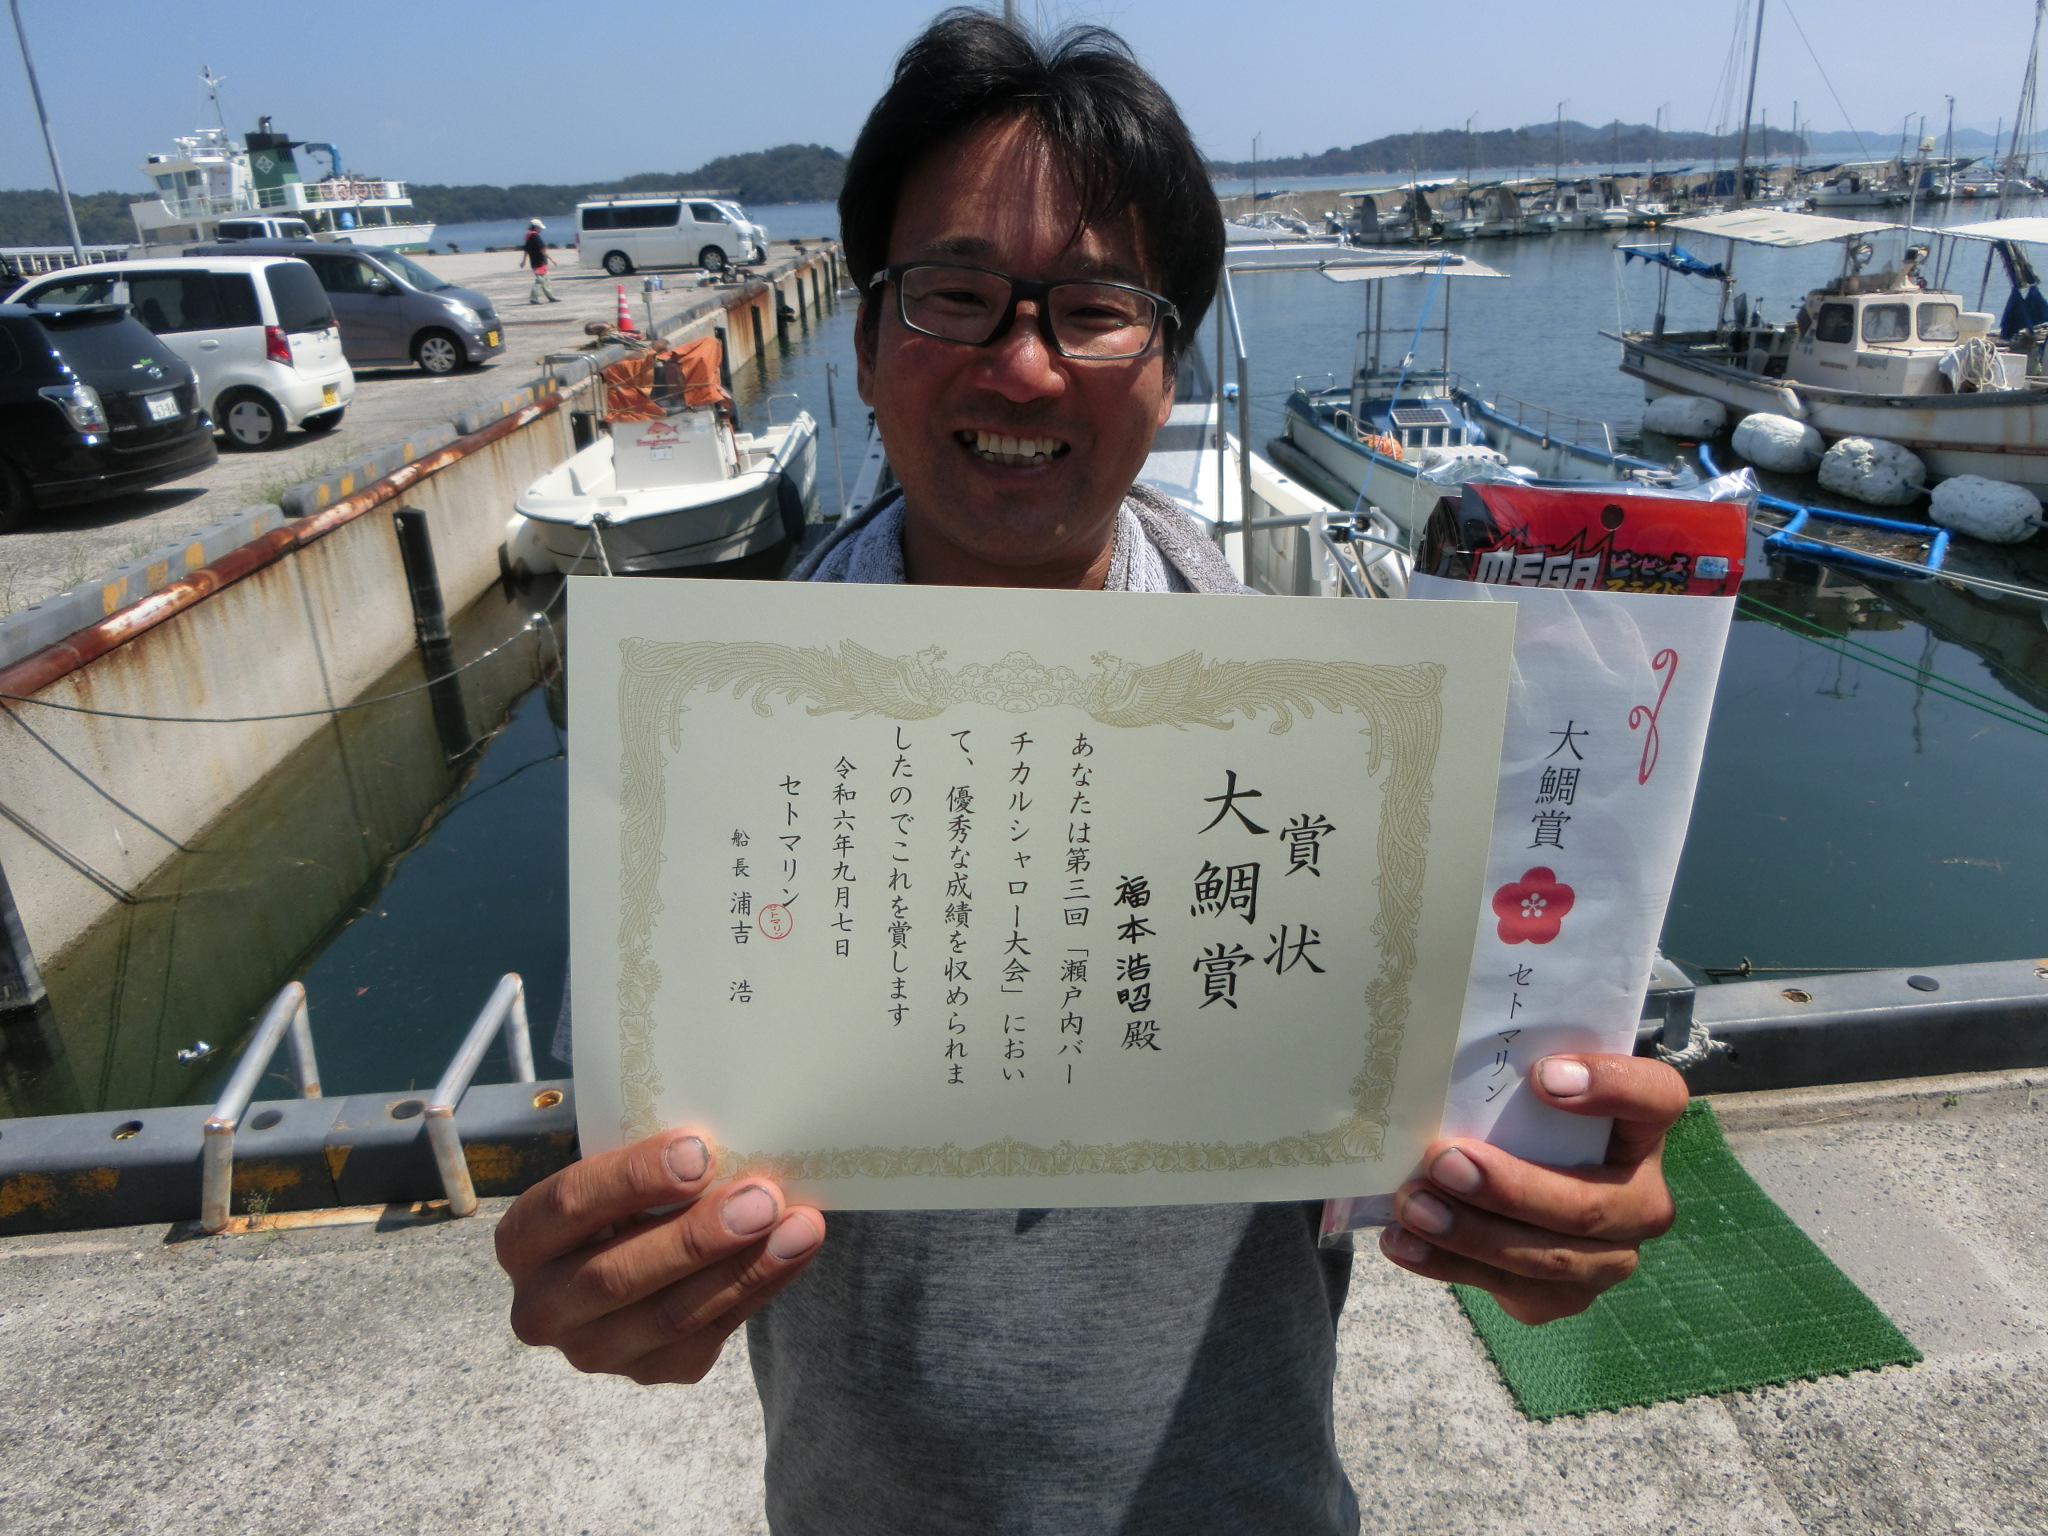 賞状
大鯛賞
福本浩昭殿
あなたは第三回「瀬戸内バー
チカルシャロー大会」におい
て、優秀な成績を収められま
したのでこれを賞します
令和六年九月七日
セトマリン
セトマリン
船長 浦吉 浩
MEGA
ビンビン玉
スライド
大鯛賞
セトマリン